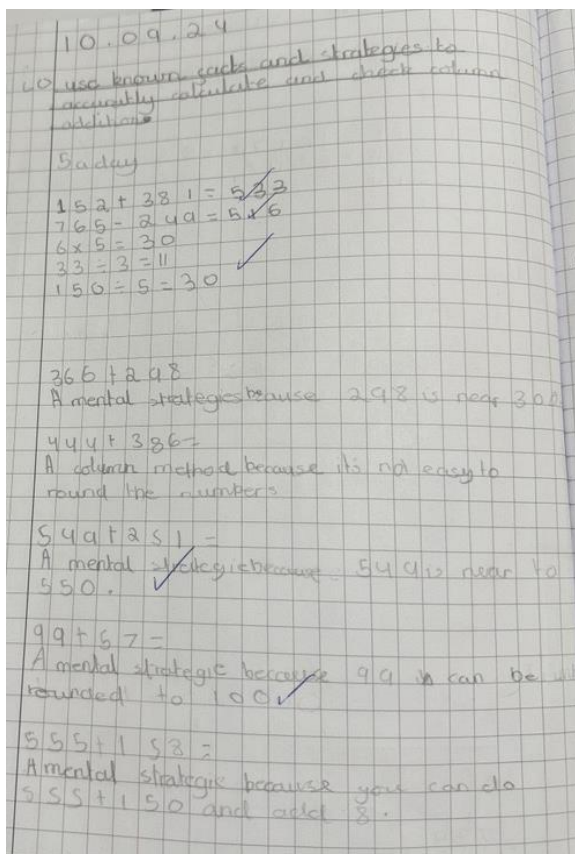 10.09.24
LO use known facts and strategies to
accuratly calculate and check column
addition
5 a day
152 + 381 = 533
765 - 249 = 516
6 x 5 = 30
33 ÷ 3 = 11
150 ÷ 5 = 30
366 + 298
A mental strategies because 298 is near 300
444 + 386 =
A column method because its not easy to
round the numbers
549 + 251 =
A mental strategie because 549 is near to
550.
99 + 67 =
A mental strategie because 99 can be
rounded to 100
555 + 158 =
A mental strategie because you can do
555 + 150 and add 8.